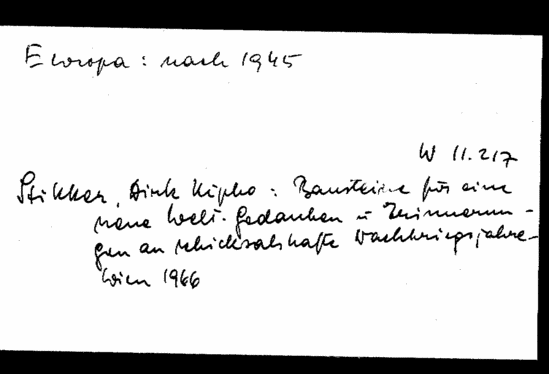 Europa: nach 1945
W 11.217
Stikker, Dirk Uipko: Bausteine für eine
neue Welt. Gedanken u Erinnerun-
gen an schicksalshafte Nachkriegsjahre-
Wien 1966